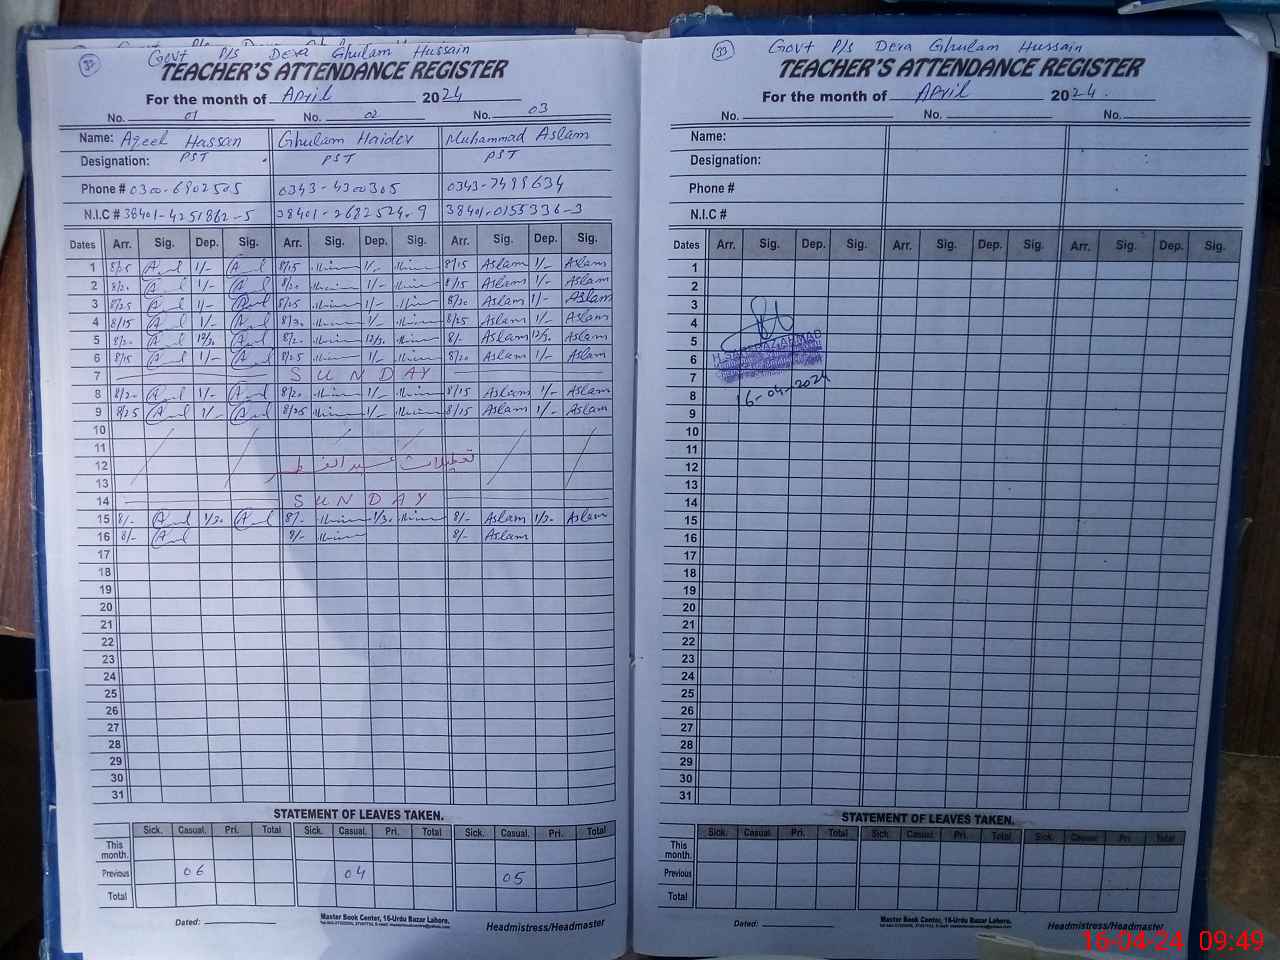 Govt P/s Dera Ghulam Hussain
32
TEACHER'S ATTENDANCE REGISTER
For the month of April 2024
No. 01 No. 02 No. 03
Name: Aqeel Hassan Ghulam Haider Muhammad Aslam
Designation: PST PST PST
Phone # 0300-6902505 0343-4300305 0343-7499634
N.I.C # 38401-4251862-5 38401-2682524-9 38401-0155336-3
Dates Arr. Sig. Dep. Sig. Arr. Sig. Dep. Sig. Arr. Sig. Dep. Sig.
1 8/25 1/- 8/15 1/- 8/15 Aslam 1/- Aslam
2 8/20 1/- 8/20 1/- 8/15 Aslam 1/- Aslam
3 8/25 1/- 8/25 1/- 8/20 Aslam 1/- Aslam
4 8/15 1/- 8/20 1/- 8/25 Aslam 1/- Aslam
5 8/20 12/30 8/20 12/30 8/- Aslam 12/30 Aslam
6 8/15 1/- 8/25 1/- 8/20 Aslam 1/- Aslam
7 SUNDAY
8 8/20 1/- 8/20 1/- 8/15 Aslam 1/- Aslam
9 8/25 1/- 8/25 1/- 8/15 Aslam 1/- Aslam
10
11
12 تعطیلات عید الفطر
13
14 SUNDAY
15 8/- 1/30 8/- 1/30 8/- Aslam 1/30 Aslam
16 8/- 8/- 8/- Aslam
17
18
19
20
21
22
23
24
25
26
27
28
29
30
31
STATEMENT OF LEAVES TAKEN.
Sick. Casual. Pri. Total Sick. Casual. Pri. Total Sick. Casual. Pri. Total
This month.
Previous 06 04 05
Total
Dated:
Master Book Center, 16-Urdu Bazar Lahore.
Headmistress/Headmaster
33
Govt P/s Dera Ghulam Hussain
TEACHER'S ATTENDANCE REGISTER
For the month of April 2024.
No. No. No.
Name:
Designation:
Phone #
N.I.C #
Dates Arr. Sig. Dep. Sig. Arr. Sig. Dep. Sig. Arr. Sig. Dep. Sig.
1
2
3
4
5
6
7
8 16-04-2024
9
10
11
12
13
14
15
16
17
18
19
20
21
22
23
24
25
26
27
28
29
30
31
STATEMENT OF LEAVES TAKEN.
Sick. Casual. Pri. Total Sick. Casual. Pri. Total Sick. Casual. Pri. Total
This month.
Previous
Total
Dated:
Master Book Center, 16-Urdu Bazar Lahore.
Headmistress/Headmaster
16-04-24 09:49